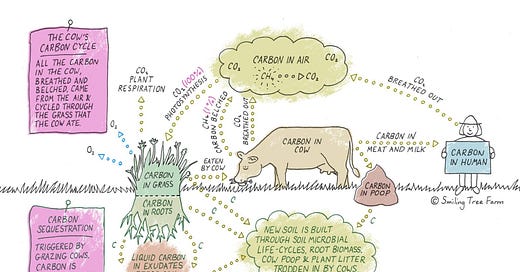 THE COW'S
CARBON CYCLE
ALL THE CARBON
IN THE COW,
BREATHED AND
BELCHED, CAME
FROM THE AIR &
CYCLED THROUGH
THE GRASS THAT
THE COW ATE.
CO₂
PLANT
RESPIRATION
CO₂ (100%)
PHOTOSYNTHESIS
CARBON IN AIR
CO₂
CO₂
CH₄
CO₂
CH₄ (1%)
CARBON BELCHED
CO₂
BREATHED OUT
CO₂
BREATHED OUT
O₂
O₂
EATEN
BY COW
CARBON IN
COW
CARBON IN
MEAT AND MILK
CARBON
IN HUMAN
CARBON
IN GRASS
CARBON
IN ROOTS
CARBON
IN POOP
© Smiling Tree Farm
CARBON
SEQUESTRATION
TRIGGERED BY
GRAZING COWS,
CARBON IS
C
C
C
C
LIQUID CARBON
IN EXUDATES
NEW SOIL IS BUILT
THROUGH SOIL MICROBIAL
LIFE-CYCLES, ROOT BIOMASS,
COW POOP & PLANT LITTER
TRODDEN IN BY COWS